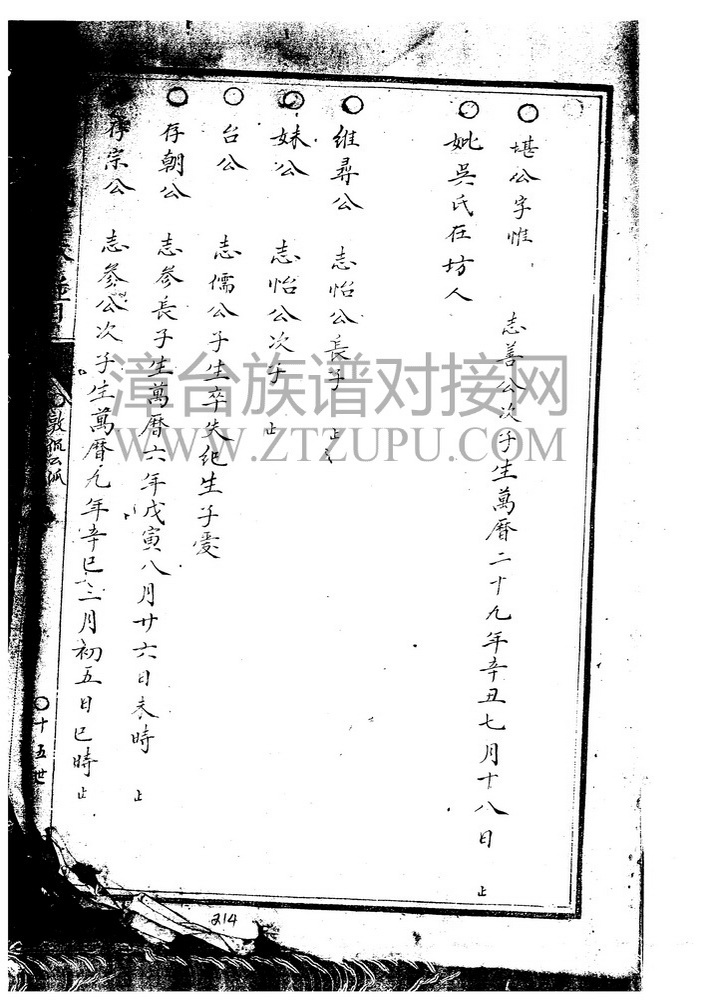 堪公字惟 志善公次子生萬曆二十九年辛丑七月十八日 止
妣吳氏在坊人
維尋公 志怡公長子 止
妹公 志怡公次子 止
台公 志儒公子生卒失紀生子愛
存朝公 志參長子生萬曆六年戊寅八月廿六日未時 止
存宗公 志參公次子生萬曆九年辛巳三月初五日巳時 止
十五世
214
漳台族谱对接网
WWW.ZTZUPU.COM